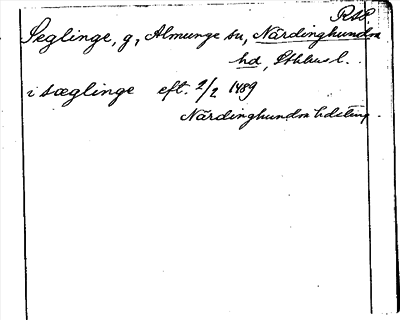 RSB.
Seglinge, g, Almunge sn, Närdinghundra
hd, Sthlms l.
i sæglinge eft. 2/2 1489
Närdinghundra hdsting.